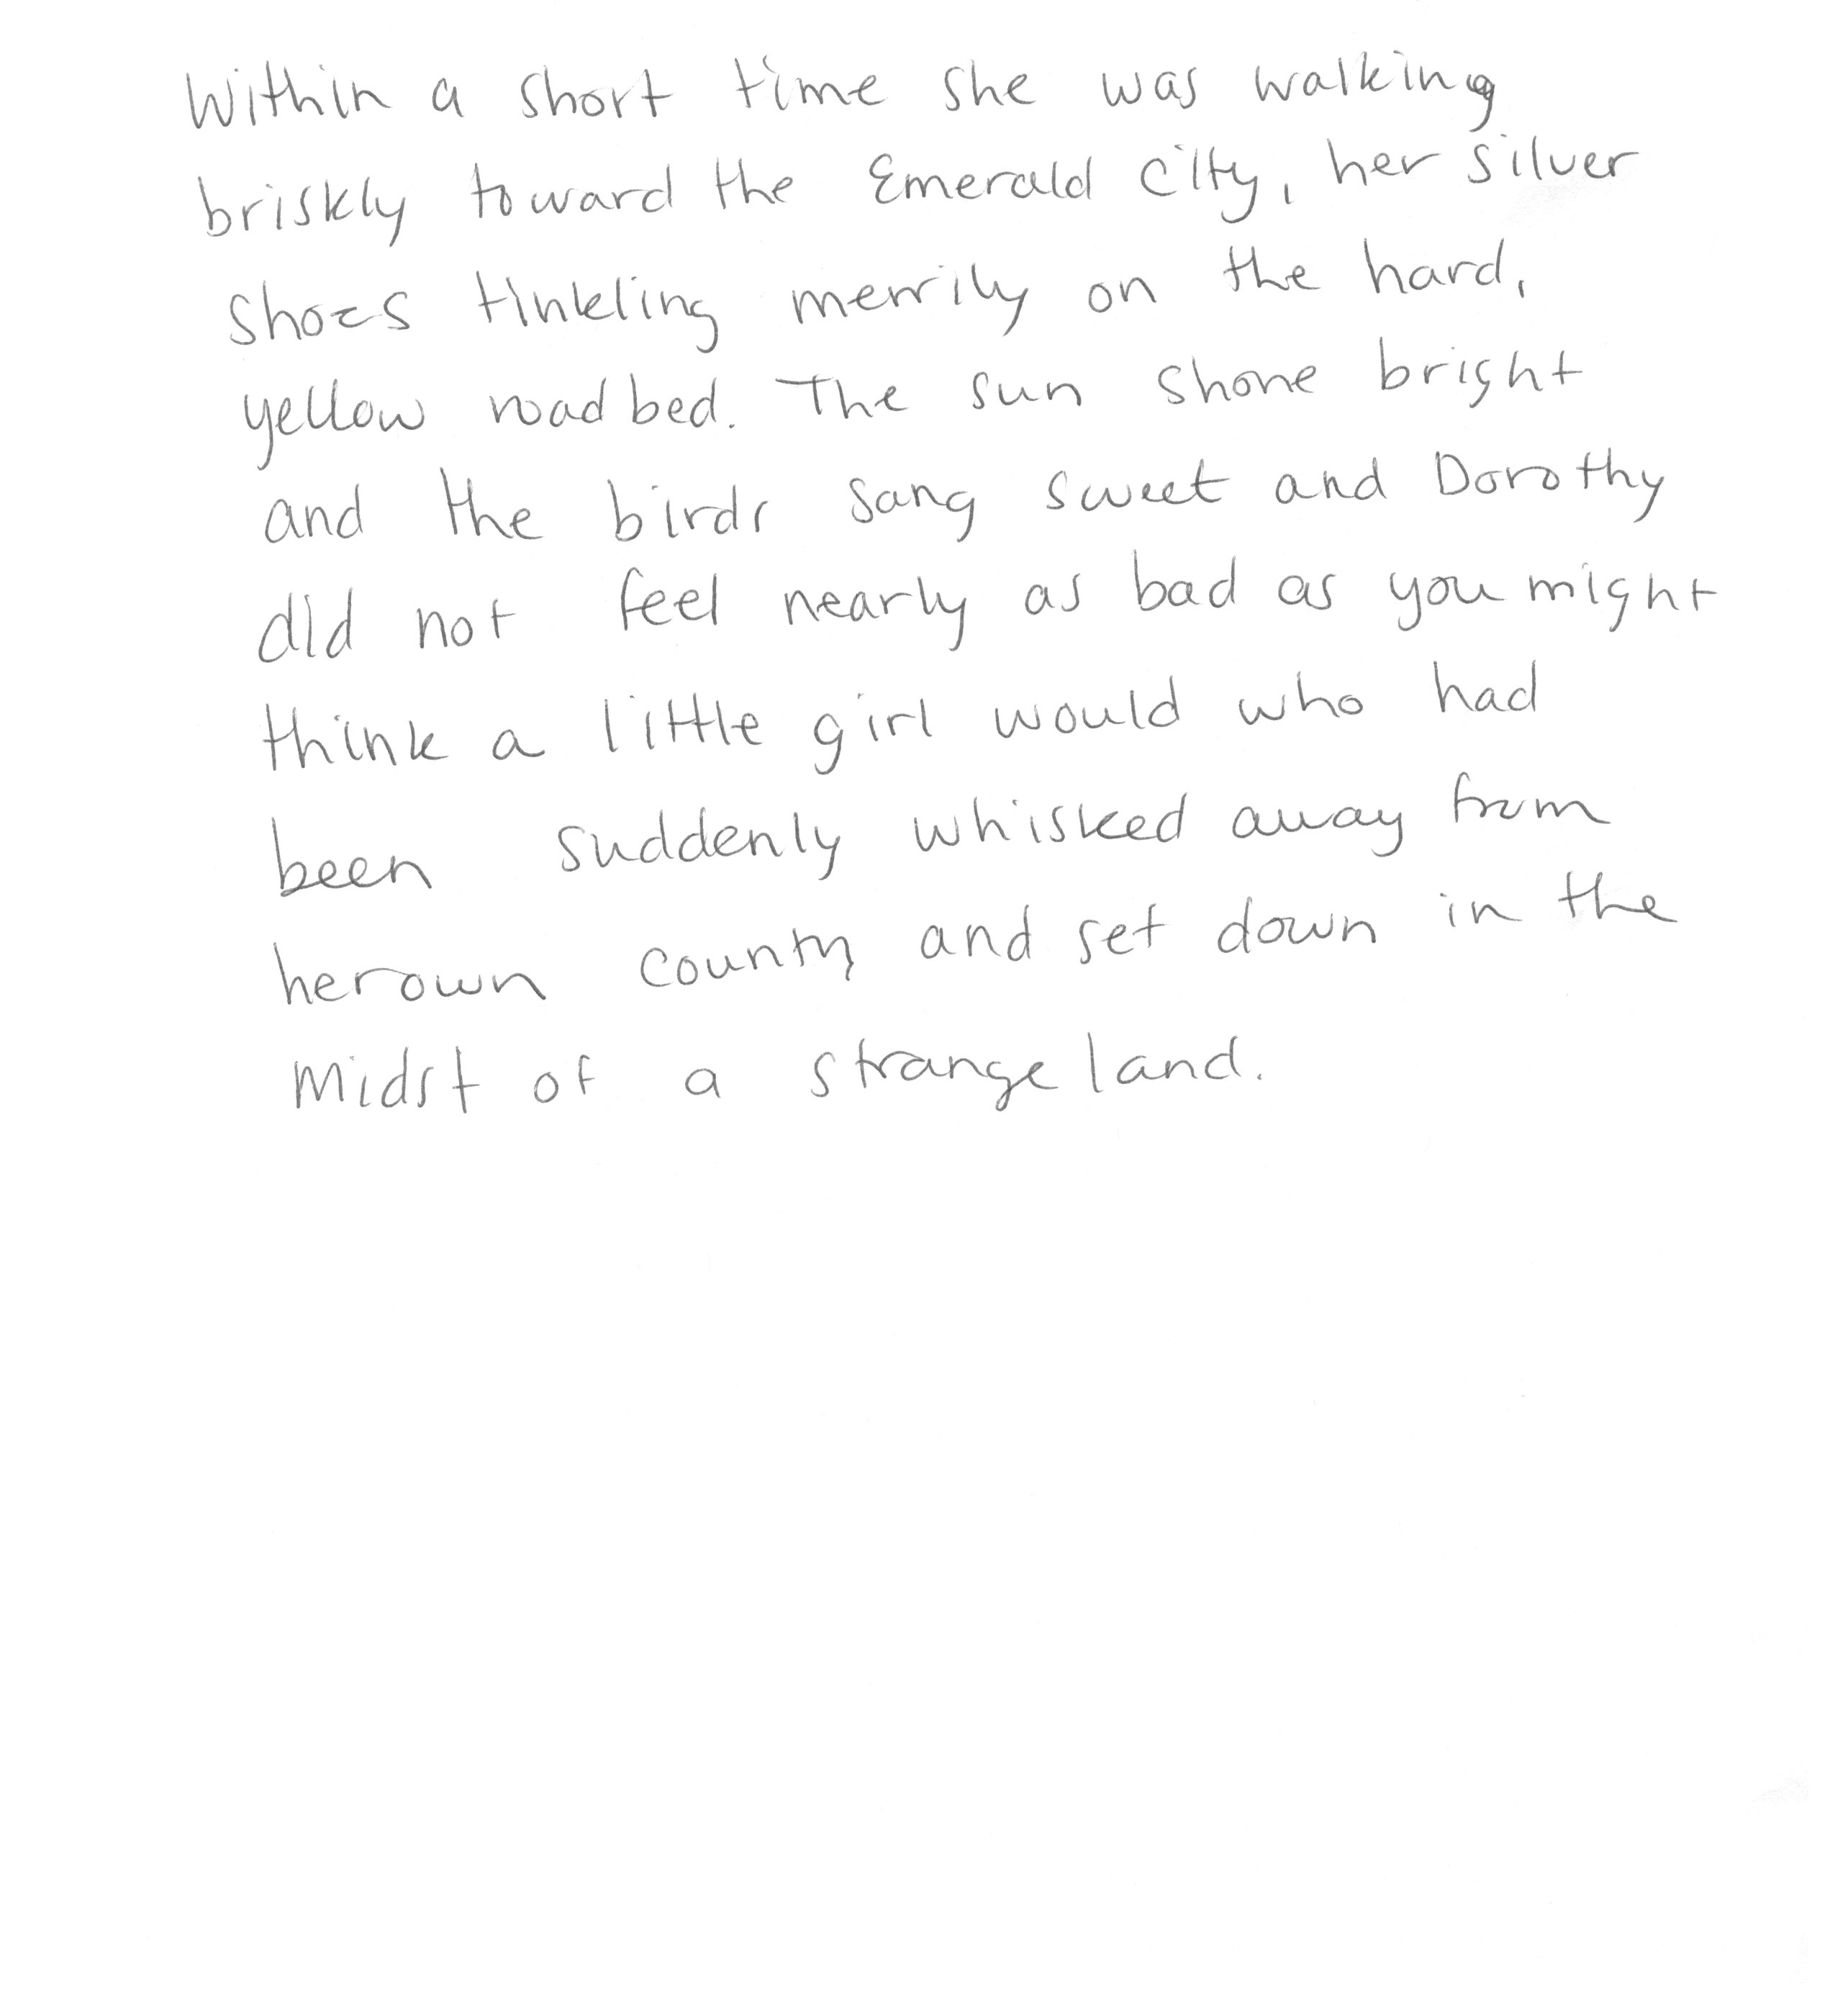 Within a short time she was walking
briskly toward the Emerald City, her silver
shoes tinkling merrily on the hard,
yellow roadbed. The sun shone bright
and the birds sang sweet and Dorothy
did not feel nearly as bad as you might
think a little girl would who had
been suddenly whisked away from
her own country and set down in the
midst of a strange land.